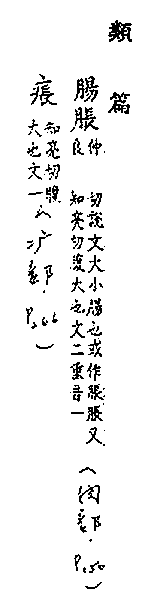 類篇
腸脹 仲良切說文大小腸也或作脹脹又知亮切腹大也文二重音一（肉部．P.150）
瘬 知亮切瘬大也文一（疒部．P.266）